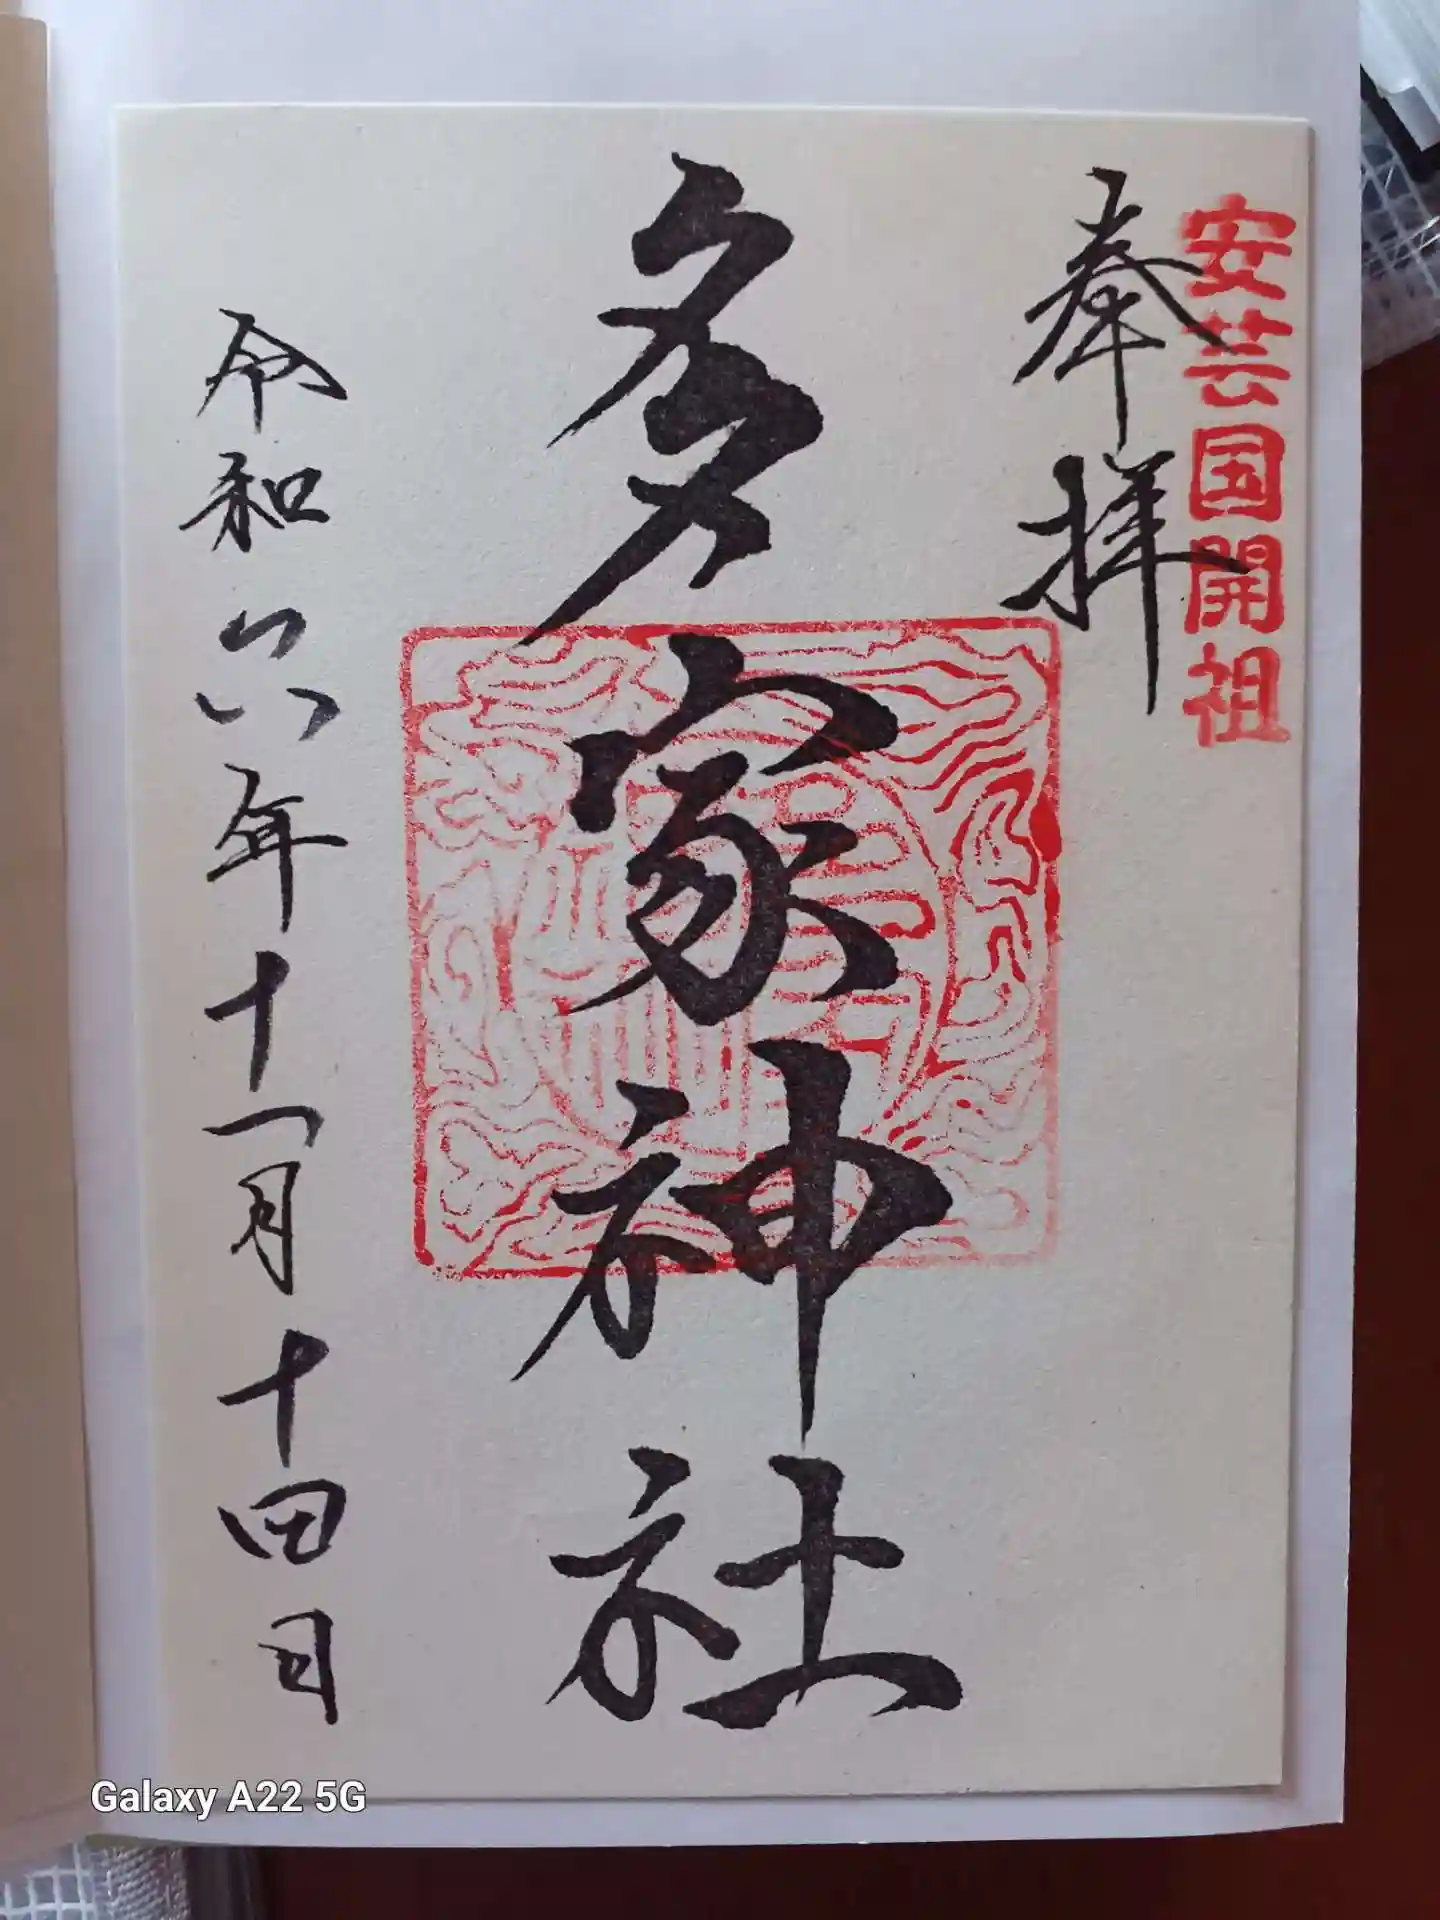 安芸国開祖
奉拝
多家神社
令和六年十一月十四日
Galaxy A22 5G